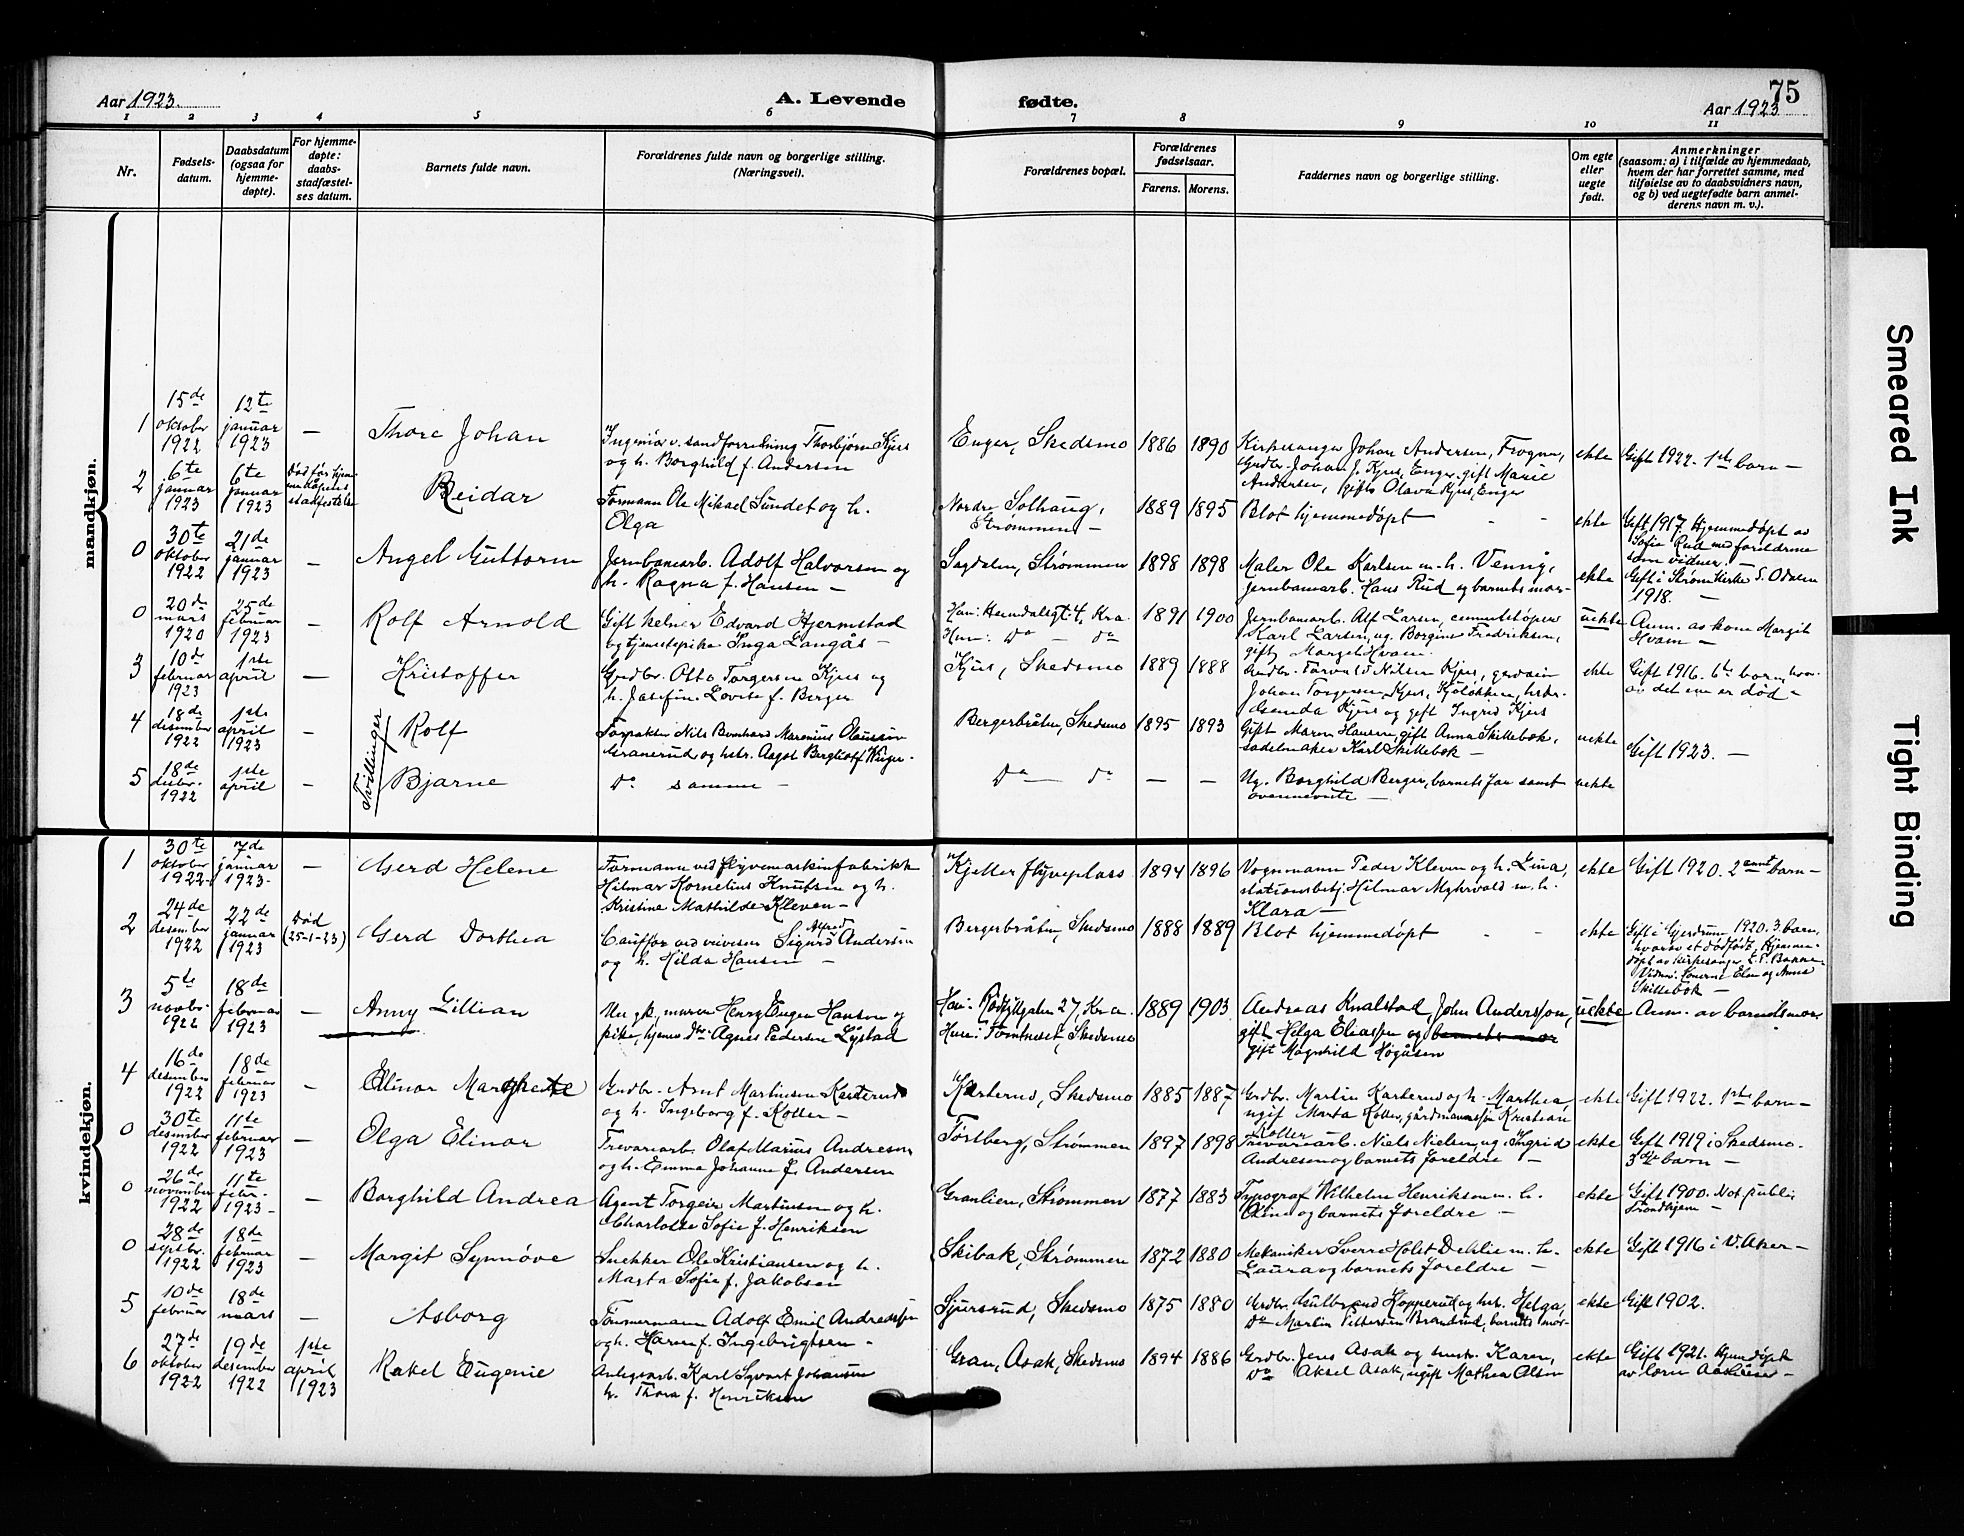 75
Aar 1923.
A. Levende
fødte.
Aar 1923
1 2 3 4 5 6 7 8 9 10 11
Nr.
Fødsels-
datum.
Daabsdatum
(ogsaa for
hjemme-
døpte).
For hjemme-
døpte:
daabs-
stadfæstel-
ses datum.
Barnets fulde navn.
Forældrenes fulde navn og borgerlige stilling.
(Næringsvei).
Forældrenes bopæl.
Forældrenes
fødselsaar.
Farens. Morens.
Faddernes navn og borgerlige stilling.
Om egte
eller
uegte
født.
Anmerkninger
(saasom: a) i tilfælde av hjemmedaab,
hvem der har forrettet samme, med
tilføielse av to daabsvidners navn,
og b) ved uegtefødte barn anmel-
derens navn m. v.).
mandkjøn.
1
15de
oktober
1922
12te
januar
1923
—
Thore Johan
Ingeniør v. sandforretning Thorbjørn Kjus
og h. Borghild f. Andersen
Enger, Skedsmo
1886 1890
Kirkesanger Johan Andersen, Frogner,
Grdbr. Johan J. Kjus, Enger, gift Marie
Andersen, gifte Olava Kjus, Enger
ekte
Gift 1922. 1ste barn —
2
6te
januar
1923
6te
januar
1923
Død før hjem-
medåpens
stadfestelse
Reidar
Formann Ole Mikael Sundet og h.
Olga
Nordre Solhaug,
Strømmen —
1889 1895
Blot hjemmedøpt
ekte
Gift 1917. Hjemmedøpt av
Sofie Rud med foreldrene
som vidner. —
0
30te
oktober
1922
21de
januar
1923
—
Angel Guttorm
Jernbanearb. Adolf Halvorsen og
h. Ragna f. Hansen —
Sagdalen, Strømmen
1898 1898
Maler Ole Karlsen m. h. Venny,
jernbanearb. Hans Rud og barnets mor-
ekte
Gift i Strøm kirke S. Odalen
1918. —
0
20de
mars
1920
25de
februar
1923
—
Rolf Arnold
Gift kelner Edvard Hjermstad
og tjenestepike Inga Langås —
Han: Heimdalsgt. 4, Kra.
Hun: Do — do
1891 1900
Jernbanearb. Alf Larsen, cementstøper
Karl Larsen, ug. Borgine Fredriksen,
gift Margit Hvam.
uekte
Anm. av kone Margit
Hvam —
3
10de
februar
1923
1ste
april
—
Kristoffer
Grdbr. Otto Torgersen Kjus og
h. Josefine Lovise f. Berger
Kjus, Skedsmo
1889 1888
Grdbr. Torvald Nilsen Kjus, gårdeier
Johan Torgersen Kjus, Kjoløkken, hstr.
Kjus og gift Ingrid Kjus
ekte
Gift 1916. 6te barn, hvor-
av det ene er død —
Tvillinger
4
18de
desember
1922
1ste
april
1923
—
Rolf
Forpakter Nils Bernhard Marenius Olaussen
Granerud og hstr. Aagot Bergliot f. Winger.
Bergerbråten, Skedsmo
1895 1893
Gift Maren Hansen, gift Anna Skillebek,
sadelmaker Karl Skillebek —
uekte
Gift 1923. —
5
18de
desbr.
1922
1ste
april
—
Bjarne
Do samme —
Do — do
— —
Ug. Borghild Berger, barnets far samt
ovennevnte —
uekte
kvindekjøn.
1
30te
oktober
1922
7de
januar
1923
—
Gerd Helene
Formann ved flyvemaskinfabrikk
Hilmar Kornelius Knutsen og h.
Kristine Mathilde Kleven —
Kjeller flyveplass
1894 1896
Vognmann Peder Kleven og h. Lina,
stationsbetj. Hilmar Myhrvold m. h.
Klara —
ekte
Gift 1920. 2annet barn —
2
24de
desember
1922
22de
januar
1923
Død
(25-1-23)
Gerd Dorthea
Cauffør ved veivesen Sigurd Alfred Andersen
og h. Hilda Hansen —
Bergerbråten, Skedsmo
1888 1889
Blot hjemmedøpt
ekte
Gift i Gjerdrum 1920. 3. barn,
hvorav et dødfødt. Hjemme-
døpt av kirkesanger E. P. Bakke.
Vidner: Konerne Elen og Anna
Skillebek —
3
5te
novbr.
1922
18de
februar
1923
—
Anny Lillian
Ungk. murer Henry Eugen Hansen og
pike, hjemv. Dtr. Agnes Pedersen Lystad
Han: 27, Kra.
Hun: Tomteset, Skedsmo
1889 1903
Andreas Knalstad, John Andersson,
gift Helga Eliassen og barnets mor
gift Magnhild Høgåsen
uekte
Anm. av barnets mor
4
16de
desember
1922
18de
februar
1923
—
Elinor Marghete
Grdbr. Arnt Martinsen Karterud
og h. Ingeborg f. Koller —
Karterud, Skedsmo
1885 1887
Grdbr. Martin Karterud og h. Marthea,
ugift Marta Koller, gårdmannssøn Kristian
Koller
ekte
Gift 1922. 1ste barn —
0
30te
desember
1922
11te
februar
1923
—
Olga Elinor
Trevarearb. Olaf Marius Andresen
og h. Emma Johanne f. Andersen
Torsberg, Strømmen
1897 1898
Trevarearb. Niels Nielsen, ug. Ingrid
Andresen og barnets foreldre —
ekte
Gift 1919 i Skedsmo.
3dje barn —
0
26de
november
1922
11te
febr.
1923
—
Borghild Andrea
Agent Torgeir Martinsen og h.
Charlotte Sofie f. Henriksen
Granlien, Strømmen
1877 1883
Typograf Wilhelm Henriksen m. h.
Oline og barnets foreldre —
ekte
Gift 1900. Not. publ. i
Trondhjem —
0
28de
septbr.
1922
18de
februar
1923
—
Margit Synnøve
Snekker Ole Kristiansen og h.
Marta Sofie f. Jakobsen
Skibak, Strømmen
1872 1880
Mekaniker Sverre Holst Dehlie m. h.
Laura og barnets foreldre —
ekte
Gift 1916 i V. Aker —
5
10de
februar
18de
mars
—
Asborg
Tømmermann Adolf Emil Andreassen
og h. Karen f. Ingebrigtsen —
Sjursrud, Skedsmo
1875 1880
Grdbr. Gulbrand Hopperud og hst. Helga,
Do Martin Pettersen Brandrud, barnets mor-
ekte
Gift 1902.
6
27de
oktober
1922
19de
desember
1922
1ste
april
1923
Rakel Eugenie
Anlegsarb. Karl Sigvart Johansen
h. Thora f. Henriksen
Gran, Asak, Skedsmo
1894 1886
Grdbr. Jens Asak og hust. Karen,
Do Aksel Asak, ugift Mathea Olsen
ekte
Gift 1921. Hjemdøpt
av lærer —
Smeared Ink
Tight Binding